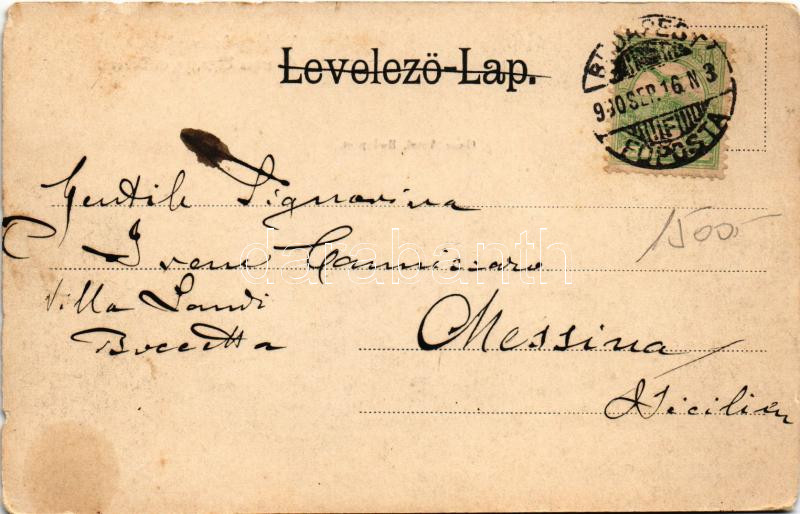 Levelező-Lap.
BUDAPEST
900 SEP. 16. N 3
FŐPOSTA
Gentile Signorina
Irene Cannizzaro
Villa Landi
Boccetta
Messina
Sicilien
1500
darabanth